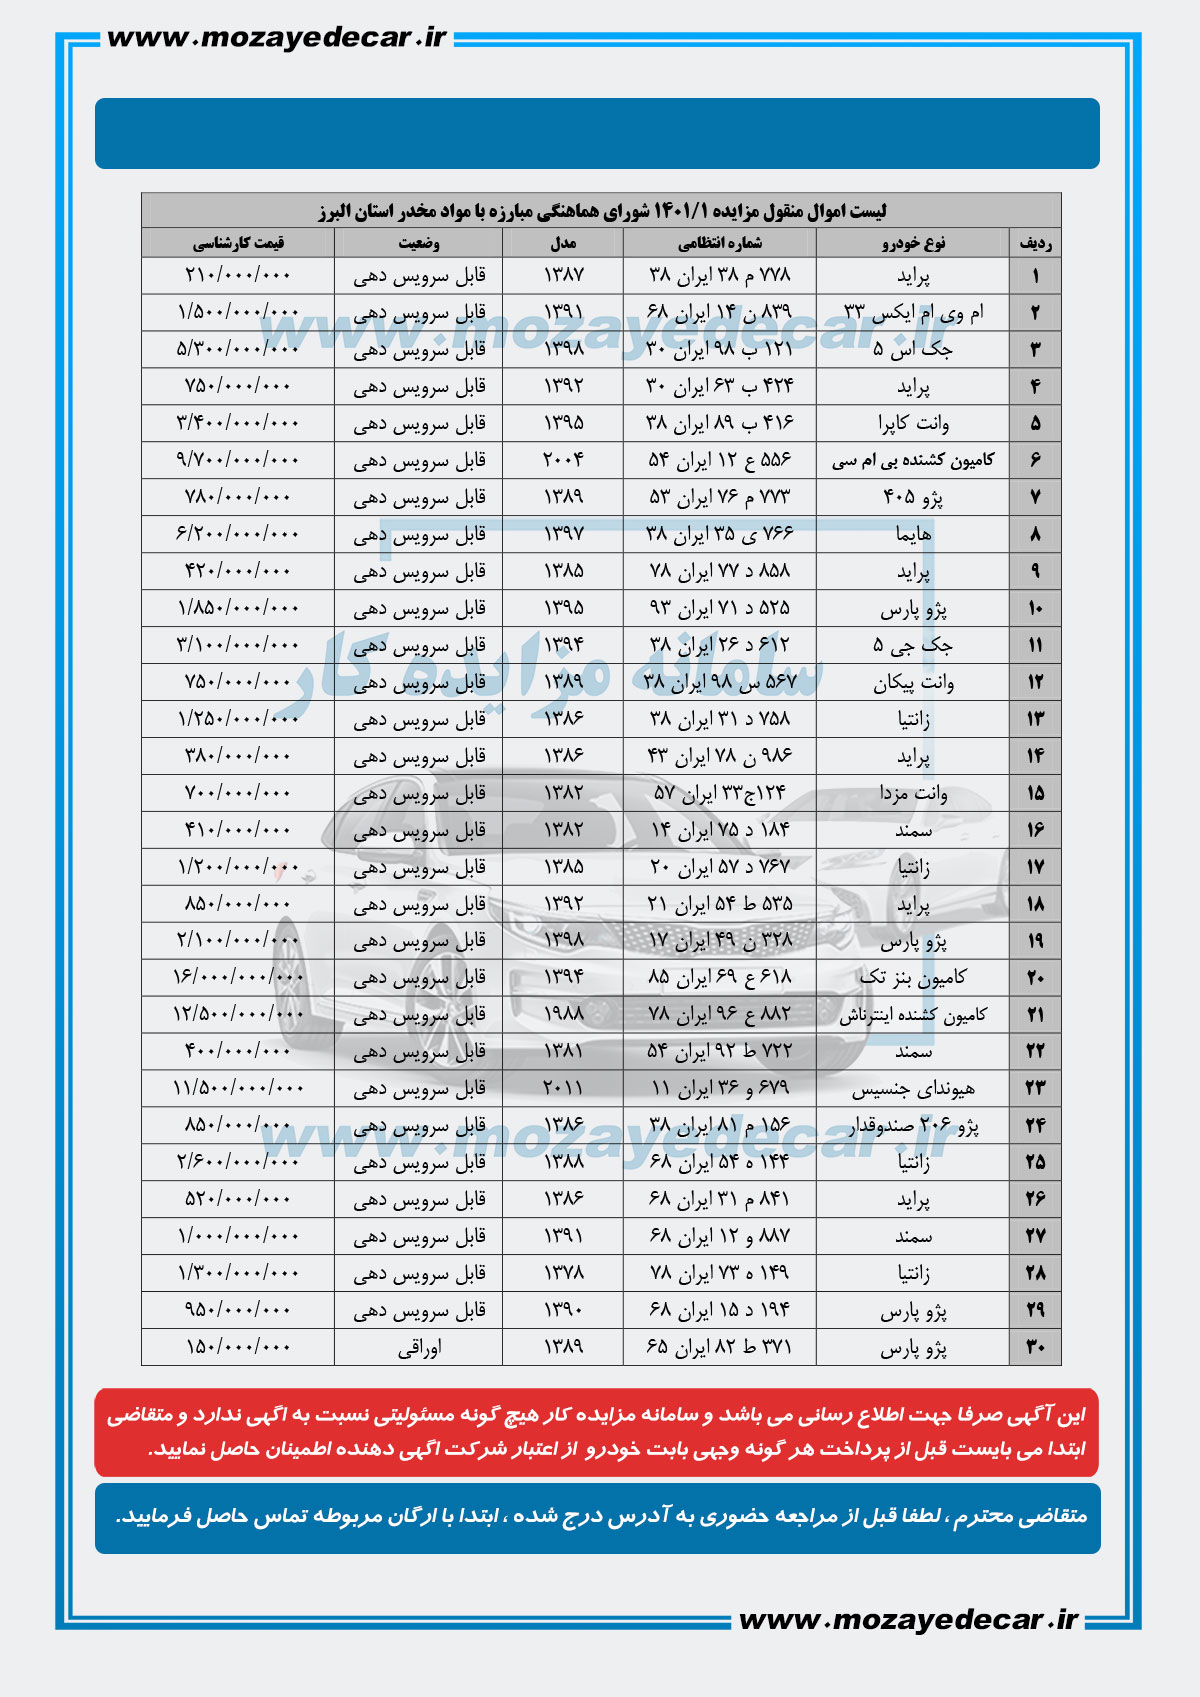 www.mozayedecar.ir
لیست اموال منقول مزایده ۱۴۰۱/۱ شورای هماهنگی مبارزه با مواد مخدر استان البرز
ردیف نوع خودرو شماره انتظامی مدل وضعیت قیمت کارشناسی
۱ پراید ۷۷۸ م ۳۸ ایران ۳۸ ۱۳۸۷ قابل سرویس دهی ۲۱۰/۰۰۰/۰۰۰
۲ ام وی ام ایکس ۳۳ ۸۳۹ ن ۱۴ ایران ۶۸ ۱۳۹۱ قابل سرویس دهی ۱/۵۰۰/۰۰۰/۰۰۰
۳ جک اس ۵ ۱۲۱ ب ۹۸ ایران ۳۰ ۱۳۹۸ قابل سرویس دهی ۵/۳۰۰/۰۰۰/۰۰۰
۴ پراید ۴۲۴ ب ۶۳ ایران ۳۰ ۱۳۹۲ قابل سرویس دهی ۷۵۰/۰۰۰/۰۰۰
۵ وانت کاپرا ۴۱۶ ب ۸۹ ایران ۳۸ ۱۳۹۵ قابل سرویس دهی ۳/۴۰۰/۰۰۰/۰۰۰
۶ کامیون کشنده بی ام سی ۵۵۶ ع ۱۲ ایران ۵۴ ۲۰۰۴ قابل سرویس دهی ۹/۷۰۰/۰۰۰/۰۰۰
۷ پژو ۴۰۵ ۷۷۳ م ۷۶ ایران ۵۳ ۱۳۸۹ قابل سرویس دهی ۷۸۰/۰۰۰/۰۰۰
۸ هایما ۷۶۶ ی ۳۵ ایران ۳۸ ۱۳۹۷ قابل سرویس دهی ۶/۲۰۰/۰۰۰/۰۰۰
۹ پراید ۸۵۸ د ۷۷ ایران ۷۸ ۱۳۸۵ قابل سرویس دهی ۴۲۰/۰۰۰/۰۰۰
۱۰ پژو پارس ۵۲۵ د ۷۱ ایران ۹۳ ۱۳۹۵ قابل سرویس دهی ۱/۸۵۰/۰۰۰/۰۰۰
۱۱ جک جی ۵ ۶۱۲ د ۲۶ ایران ۳۸ ۱۳۹۴ قابل سرویس دهی ۳/۱۰۰/۰۰۰/۰۰۰
۱۲ وانت پیکان ۵۶۷ س ۹۸ ایران ۳۸ ۱۳۸۹ قابل سرویس دهی ۷۵۰/۰۰۰/۰۰۰
۱۳ زانتیا ۷۵۸ د ۳۱ ایران ۳۸ ۱۳۸۶ قابل سرویس دهی ۱/۲۵۰/۰۰۰/۰۰۰
۱۴ پراید ۹۸۶ ن ۷۸ ایران ۴۳ ۱۳۸۶ قابل سرویس دهی ۳۸۰/۰۰۰/۰۰۰
۱۵ وانت مزدا ۱۲۴ج۳۳ ایران ۵۷ ۱۳۸۲ قابل سرویس دهی ۷۰۰/۰۰۰/۰۰۰
۱۶ سمند ۱۸۴ د ۷۵ ایران ۱۴ ۱۳۸۲ قابل سرویس دهی ۴۱۰/۰۰۰/۰۰۰
۱۷ زانتیا ۷۶۷ د ۵۷ ایران ۲۰ ۱۳۸۵ قابل سرویس دهی ۱/۲۰۰/۰۰۰/۰۰۰
۱۸ پراید ۵۳۵ ط ۵۴ ایران ۲۱ ۱۳۹۲ قابل سرویس دهی ۸۵۰/۰۰۰/۰۰۰
۱۹ پژو پارس ۳۲۸ ن ۴۹ ایران ۱۷ ۱۳۹۸ قابل سرویس دهی ۲/۱۰۰/۰۰۰/۰۰۰
۲۰ کامیون بنز تک ۶۱۸ ع ۶۹ ایران ۸۵ ۱۳۹۴ قابل سرویس دهی ۱۶/۰۰۰/۰۰۰/۰۰۰
۲۱ کامیون کشنده اینترناش ۸۸۲ ع ۹۶ ایران ۷۸ ۱۹۸۸ قابل سرویس دهی ۱۲/۵۰۰/۰۰۰/۰۰۰
۲۲ سمند ۷۲۲ ط ۹۲ ایران ۵۴ ۱۳۸۱ قابل سرویس دهی ۴۰۰/۰۰۰/۰۰۰
۲۳ هیوندای جنسیس ۶۷۹ و ۳۶ ایران ۱۱ ۲۰۱۱ قابل سرویس دهی ۱۱/۵۰۰/۰۰۰/۰۰۰
۲۴ پژو ۲۰۶ صندوقدار ۱۵۶ م ۸۱ ایران ۳۸ ۱۳۸۶ قابل سرویس دهی ۸۵۰/۰۰۰/۰۰۰
۲۵ زانتیا ۱۴۴ ه ۵۴ ایران ۶۸ ۱۳۸۸ قابل سرویس دهی ۲/۶۰۰/۰۰۰/۰۰۰
۲۶ پراید ۸۴۱ م ۳۱ ایران ۶۸ ۱۳۸۶ قابل سرویس دهی ۵۲۰/۰۰۰/۰۰۰
۲۷ سمند ۸۸۷ و ۱۲ ایران ۶۸ ۱۳۹۱ قابل سرویس دهی ۱/۰۰۰/۰۰۰/۰۰۰
۲۸ زانتیا ۱۴۹ ه ۷۳ ایران ۷۸ ۱۳۷۸ قابل سرویس دهی ۱/۳۰۰/۰۰۰/۰۰۰
۲۹ پژو پارس ۱۹۴ د ۱۵ ایران ۶۸ ۱۳۹۰ قابل سرویس دهی ۹۵۰/۰۰۰/۰۰۰
۳۰ پژو پارس ۳۷۱ ط ۸۲ ایران ۶۵ ۱۳۸۹ اوراقی ۱۵۰/۰۰۰/۰۰۰
www.mozayedecar.ir
سامانه مزایده کار
www.mozayedecar.ir
این آگهی صرفا جهت اطلاع رسانی می باشد و سامانه مزایده کار هیچ گونه مسئولیتی نسبت به اگهی ندارد و متقاضی
ابتدا می بایست قبل از پرداخت هر گونه وجهی بابت خودرو از اعتبار شرکت اگهی دهنده اطمینان حاصل نمایید.
متقاضی محترم ، لطفا قبل از مراجعه حضوری به آدرس درج شده ، ابتدا با ارگان مربوطه تماس حاصل فرمایید.
www.mozayedecar.ir